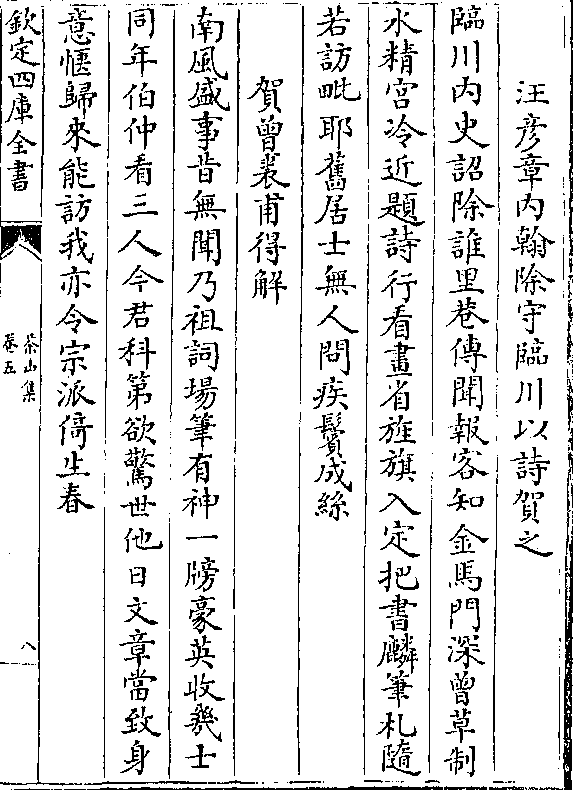 汪彦章内翰除守臨川以詩賀之
臨川内史詔除誰里巷傳聞報客知金馬門深曾草制
水精宫冷近題詩行看畫省旌旗入定把書麟筆札隨
若訪毗耶舊居士無人問疾鬢成絲
賀曾裘甫得解
南風盛事昔無聞乃祖詞場筆有神一牓豪英收幾士
同年伯仲看三人今君科第欲驚世他日文章當致身
意愜歸來能訪我亦令宗派倚生春
欽定四庫全書
茶山集
卷五
八